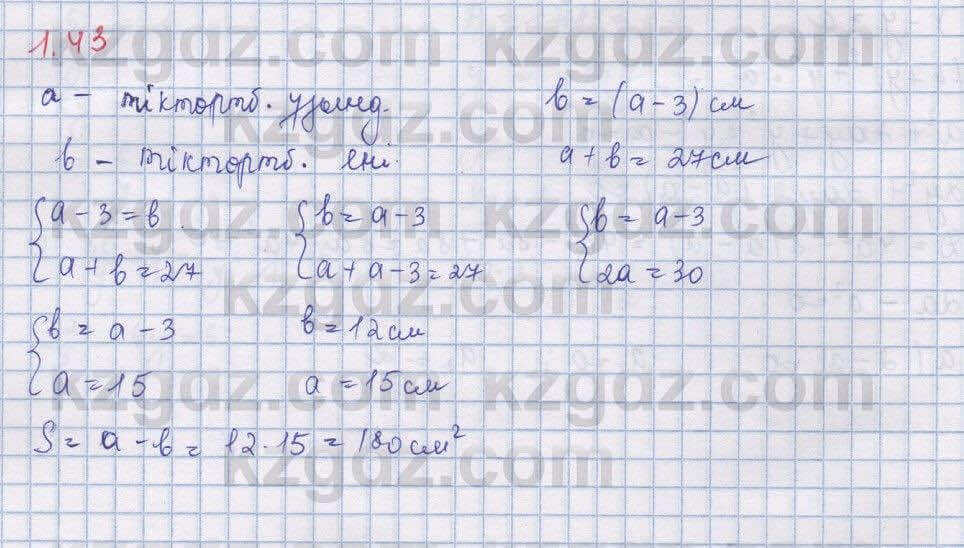 1.43
a – тіктөртб. ұзынд. b = (a – 3) см
b – тіктөртб. ені. a + b = 27 см
{ a – 3 = b { b = a – 3 { b = a – 3
a + b = 27 a + a – 3 = 27 2a = 30
{ b = a – 3 b = 12 см
a = 15 a = 15 см
S = a – b = 12 · 15 = 180 см²
kzgdz.com